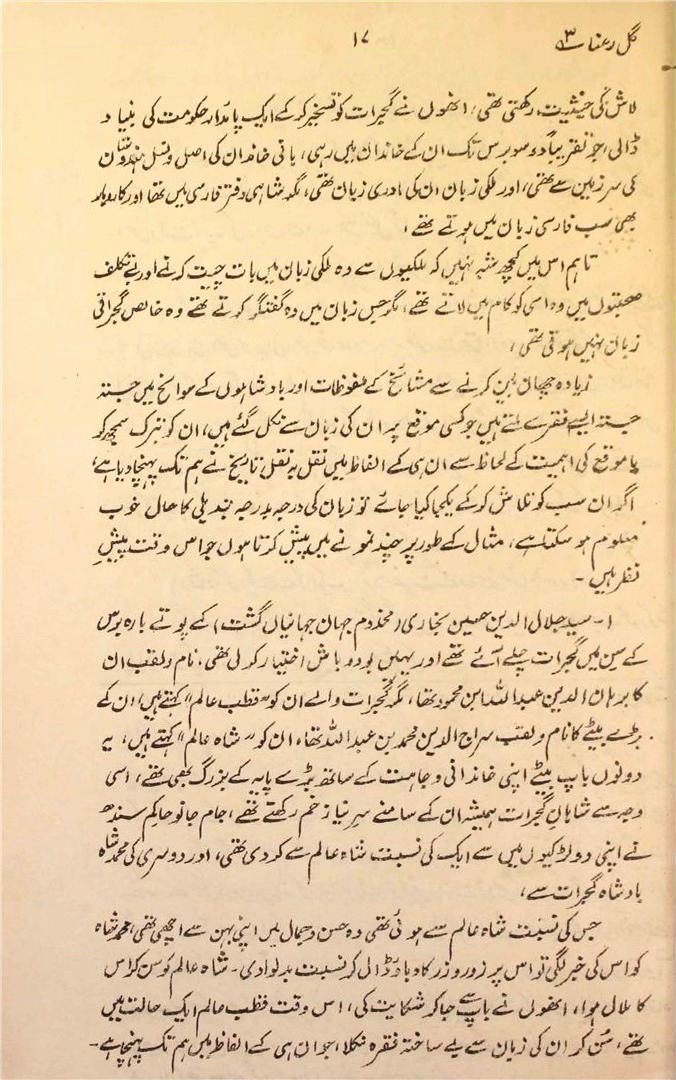 گل رعنا ۳ ۱۷
لاش کی حیثیت رکھتی تھی، انھوں نے گجرات کو تسخیر کر کے ایک پائدار حکومت کی بنیاد
ڈالی، جو تقریباً دو سو برس تک ان کے خاندان میں رہی، باقی خاندان کی اصل و نسل ہندوستان
کی سرزمین سے تھی، اور ملکی زبان ان کی مادری زبان تھی، مگر شاہی دفتر فارسی میں تھا اور کاروبار
بھی سب فارسی زبان میں ہوتے تھے،
تاہم اس میں کچھ شبہ نہیں کہ ملکیوں سے وہ ملکی زبان میں بات چیت کرتے اور بے تکلف
صحبتوں میں وہ اسی کو کام میں لاتے تھے، مگر جس زبان میں وہ گفتگو کرتے تھے وہ خالص گجراتی
زبان نہیں ہوتی تھی،
زیادہ چھان بین کرنے سے مشائخ کے ملفوظات اور بادشاہوں کے سوانح میں جستہ
جستہ ایسے فقرے ملتے ہیں جو کسی موقع پر ان کی زبان سے نکل گئے ہیں، ان کو تبرک سمجھ کر
یا موقع کی اہمیت کے لحاظ سے ان ہی کے الفاظ میں نقل بہ نقل تاریخ نے ہم تک پہنچا دیا ہے،
اگر ان سب کو تلاش کر کے یکجا کیا جائے تو زبان کی درجہ بدرجہ تبدیلی کا حال خوب
معلوم ہو سکتا ہے، مثال کے طور پر چند نمونے میں پیش کرتا ہوں جو اس وقت پیشِ
نظر ہیں۔
۱۔ سید جلال الدین حسین بخاری (مخدوم جہان جہانیاں گشت) کے پوتے بارہ برس
کے سن میں گجرات چلے آئے تھے اور یہیں بود و باش اختیار کر لی تھی، نام و لقب ان
کا برہان الدین عبد اللہ ابن محمود تھا، مگر گجرات والے ان کو "قطب عالم" کہتے ہیں، ان کے
بڑے بیٹے کا نام و لقب سراج الدین محمد بن عبد اللہ تھا، ان کو "شاہ عالم" کہتے ہیں، یہ
دونوں باپ بیٹے اپنی خاندانی وجاہت کے ساتھ بڑے پایہ کے بزرگ بھی تھے، اسی
وجہ سے شاہان گجرات ہمیشہ ان کے سامنے سر نیاز خم رکھتے تھے، جام جانو حاکم سندھ
نے اپنی دو لڑکیوں میں سے ایک کی نسبت شاہ عالم سے کر دی تھی، اور دوسری کی محمد شاہ
بادشاہ گجرات سے،
جس کی نسبت شاہ عالم سے ہوئی تھی وہ حسن و جمال میں اپنی بہن سے اچھی تھی، محمد شاہ
کو اس کی خبر لگی تو اس پر زور و زر کا دباؤ ڈال کر نسبت بدلوا دی۔ شاہ عالم کو سن کر اس
کا ملال ہوا، انھوں نے باپ سے جا کر شکایت کی، اس وقت قطب عالم ایک حالت میں
تھے، سُن کر ان کی زبان سے بے ساختہ فقرہ نکلا، جو ان ہی کے الفاظ میں ہم تک پہنچا ہے۔